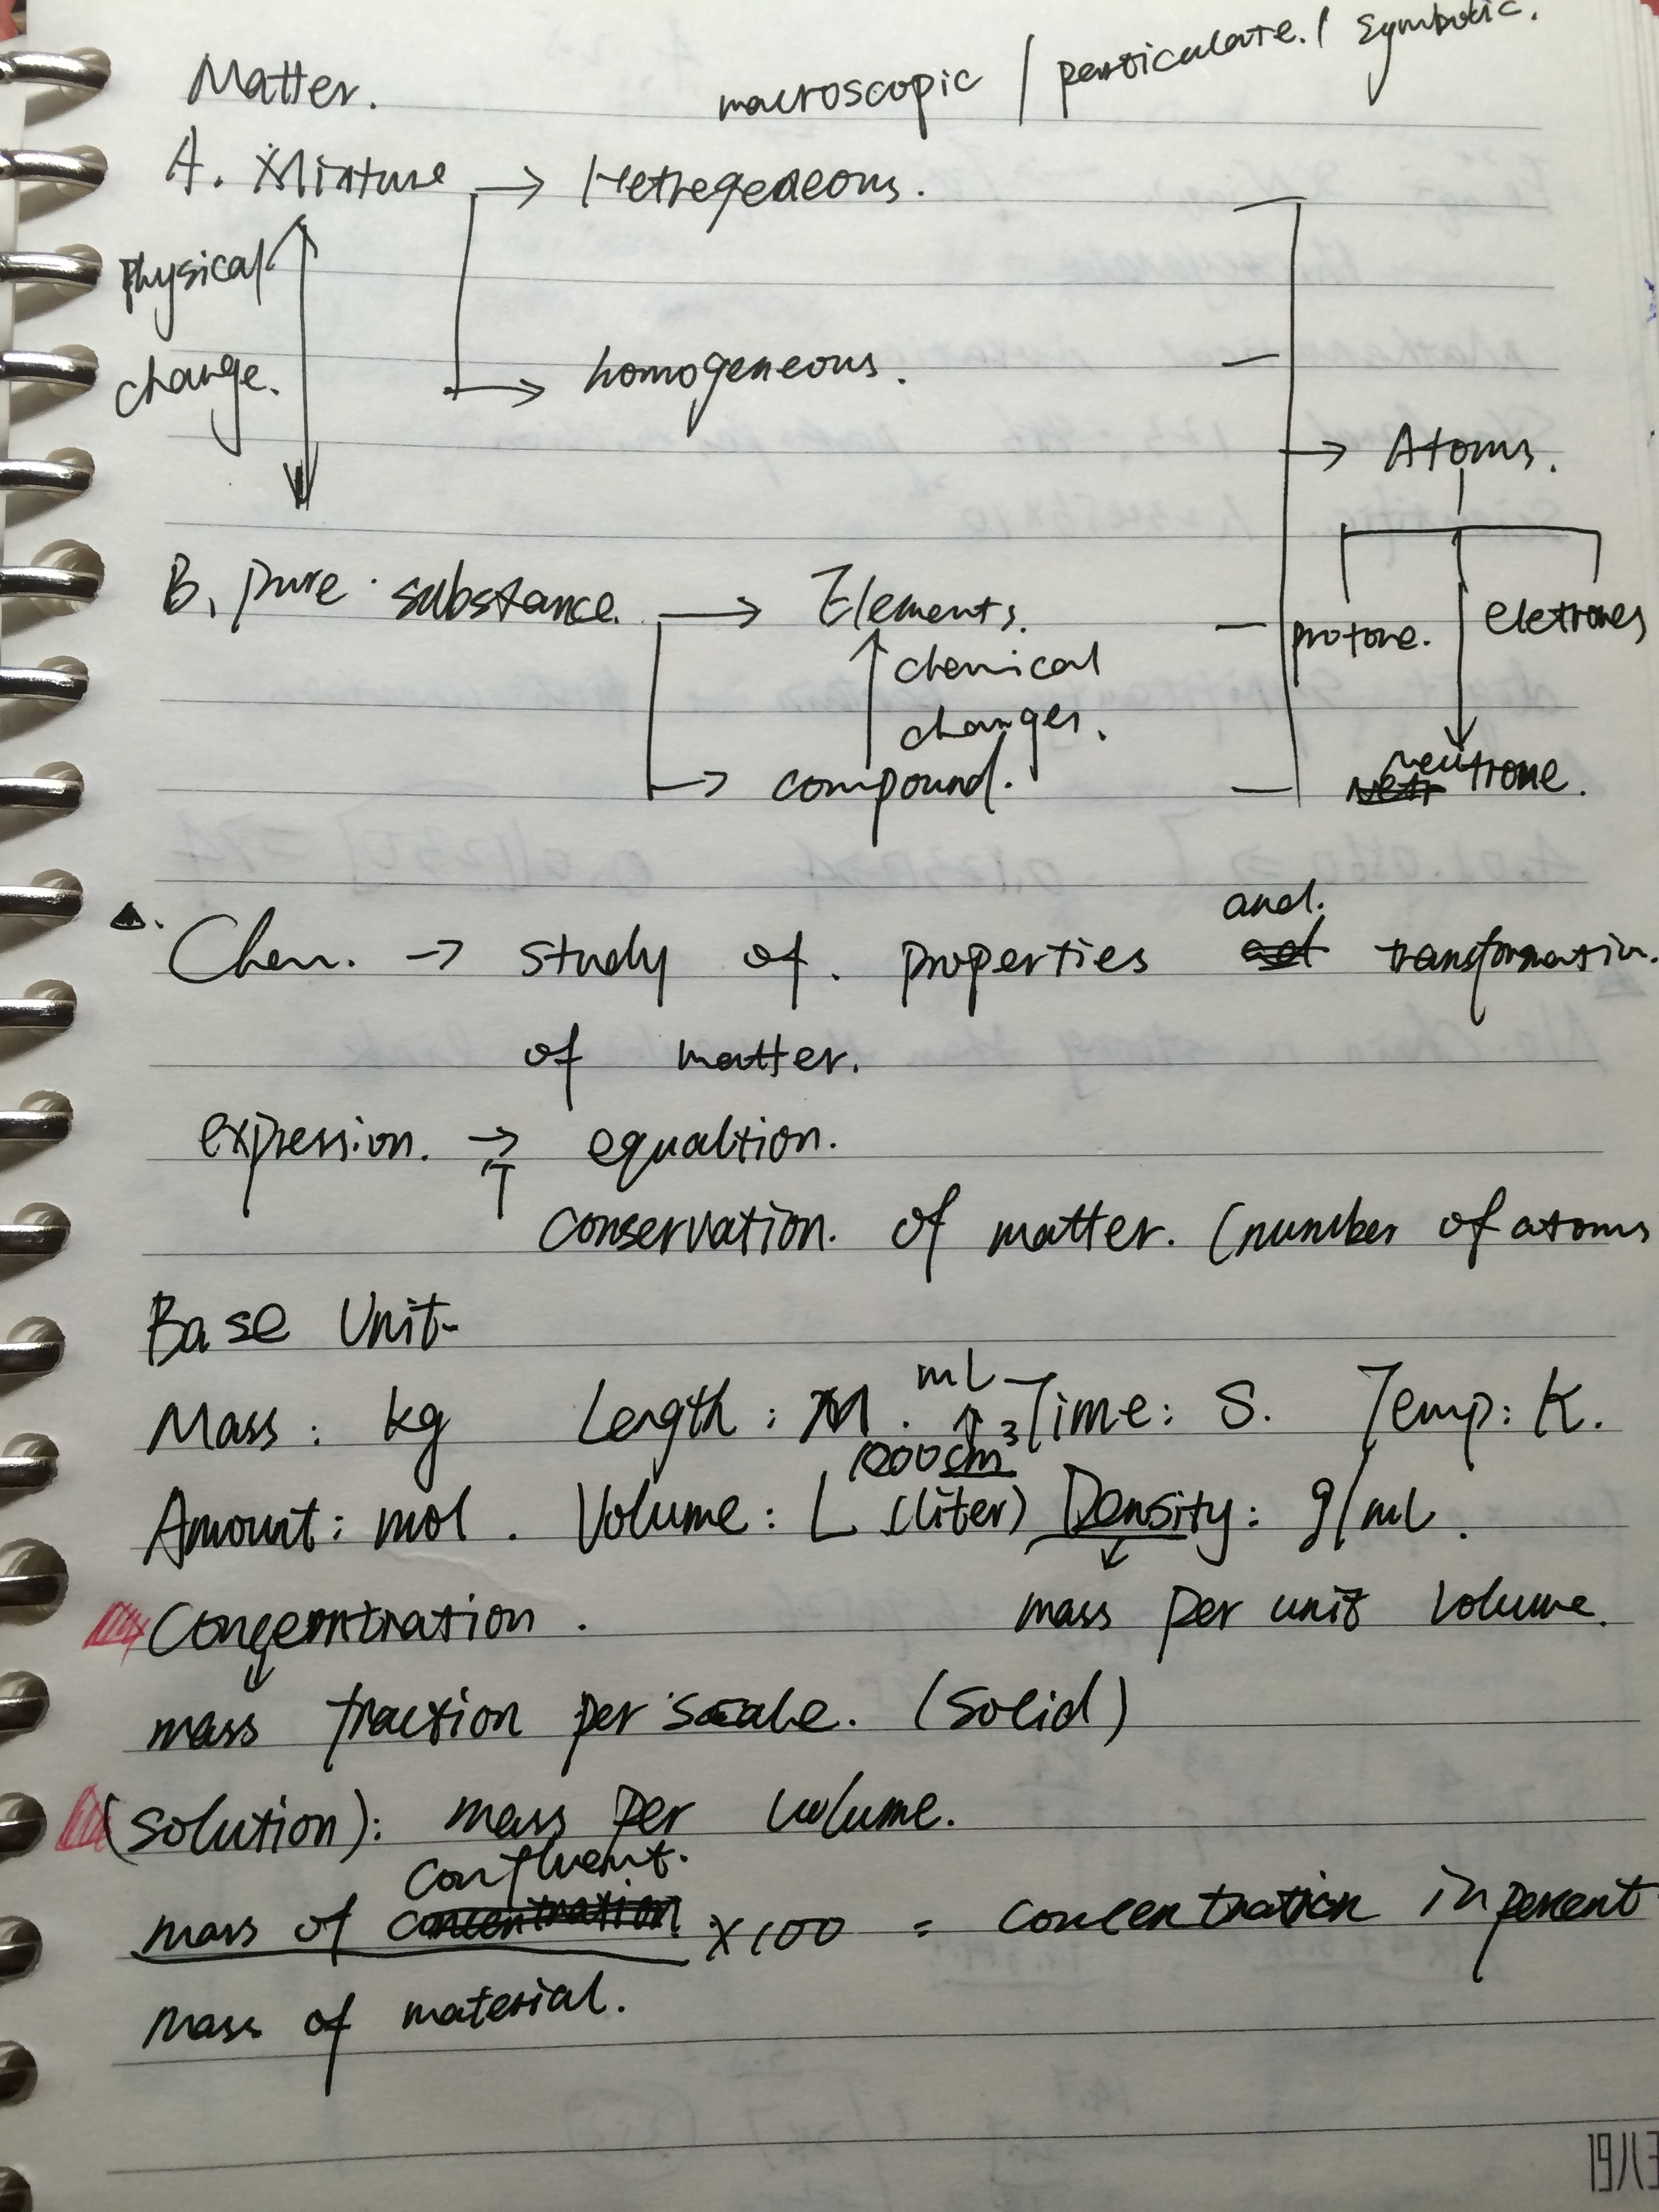 Matter.
macroscopic / particulate. / symbolic.
A. Mixture → Hetregeneous.
Physical
change.
homogeneous.
→ Atoms.
B. pure substance. → Elements.
protone. eletrones
chemical
changes.
→ compound.
neutrone.
and.
Chem. → study of. properties transformation.
of matter.
expression. → equaltion.
↑
conservation. of matter. (number of atoms
Base Unit-
mL
Mass: kg Length: M. Time: S. Temp: K.
1000cm³
Amount: mol. Volume: L (liter) Density: g/mL.
mass per unit volume.
Concentration.
mass fraction per scale. (Solid)
(Solution): mass per volume.
confluent.
mass of concentration × 100 = concentration in percent
mass of material.